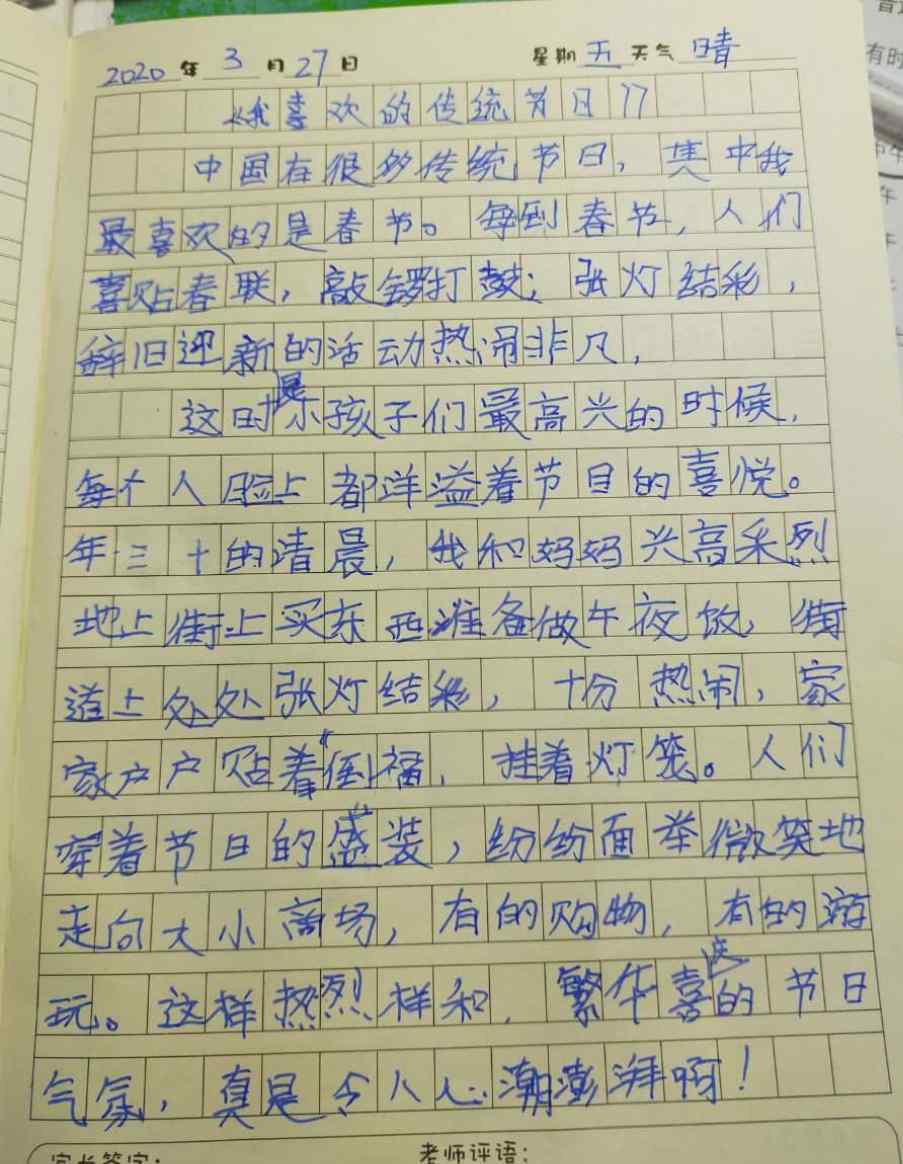 2020年3月27日 星期五天气晴
《我喜欢的传统节日》
中国在很多传统节日，其中我
最喜欢的是春节。每到春节，人们
喜贴春联，敲锣打鼓；张灯结彩，
辞旧迎新的活动热闹非凡，
这时是小孩子们最高兴的时候，
每个人脸上都洋溢着节目的喜悦。
年三十的清晨，我和妈妈兴高采烈
地上街上买东西准备做午夜饭，街
道上处处张灯结彩，十分热闹，家
家户户贴着“倒福，挂着灯笼。人们
穿着节日的盛装，纷纷面举微笑地
走向大小商场，有的购物，有的游
玩。这样热烈样和，繁华喜庆的节日
气氛，真是令人心潮澎湃啊！
老师评语：
家长签字：
有时